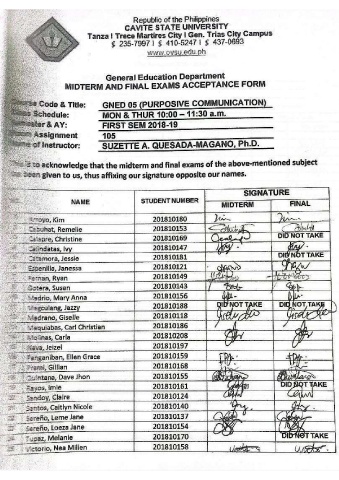 Republic of the Philippines
CAVITE STATE UNIVERSITY
Tanza I Trece Martires City I Gen. Trias City Campus
$ 235-7997 I $ 410-5247 I $ 437-0693
www.cvsu.edu.ph
General Education Department
MIDTERM AND FINAL EXAMS ACCEPTANCE FORM
Code & Title: GNED 05 (PURPOSIVE COMMUNICATION)
Schedule: MON & THUR 10:00 - 11:30 a.m.
& AY: FIRST SEM 2018-19
Assignment 105
of Instructor: SUZETTE A. QUESADA-MAGANO, Ph.D.
is to acknowledge that the midterm and final exams of the above-mentioned subject
been given to us, thus affixing our signature opposite our names.
NAME STUDENT NUMBER SIGNATURE
MIDTERM FINAL
Arroyo, Kim 201810180
Cabuhat, Remelie 201810153
Calapre, Christine 201810169 DID NOT TAKE
Calindatas, Ivy 201810147
Catamora, Jessia 201810181 DID NOT TAKE
Espenilla, Janessa 201810121
Fernan, Ryan 201810149
Gotera, Susan 201810143
Madrio, Mary Anna 201810156
Magculang, Jazzy 201810188 DID NOT TAKE DID NOT TAKE
Medrano, Giselle 201810118
Maquiabas, Carl Christian 201810186
Molinas, Carla 201810208
Nava, Jeizel 201810197
Panganiban, Ellen Grace 201810159
Prami, Gillian 201810168
Quintana, Dave Jhon 201810155
Rayos, Imie 201810161 DID NOT TAKE
Sandoy, Claire 201810124
Santos, Caitlyn Nicole 201810140
Sereño, Leme Jane 201810137
Sereño, Loeza Jane 201810154
Tupaz, Melanie 201810170 DID NOT TAKE
Victorio, Nea Milien 201810158